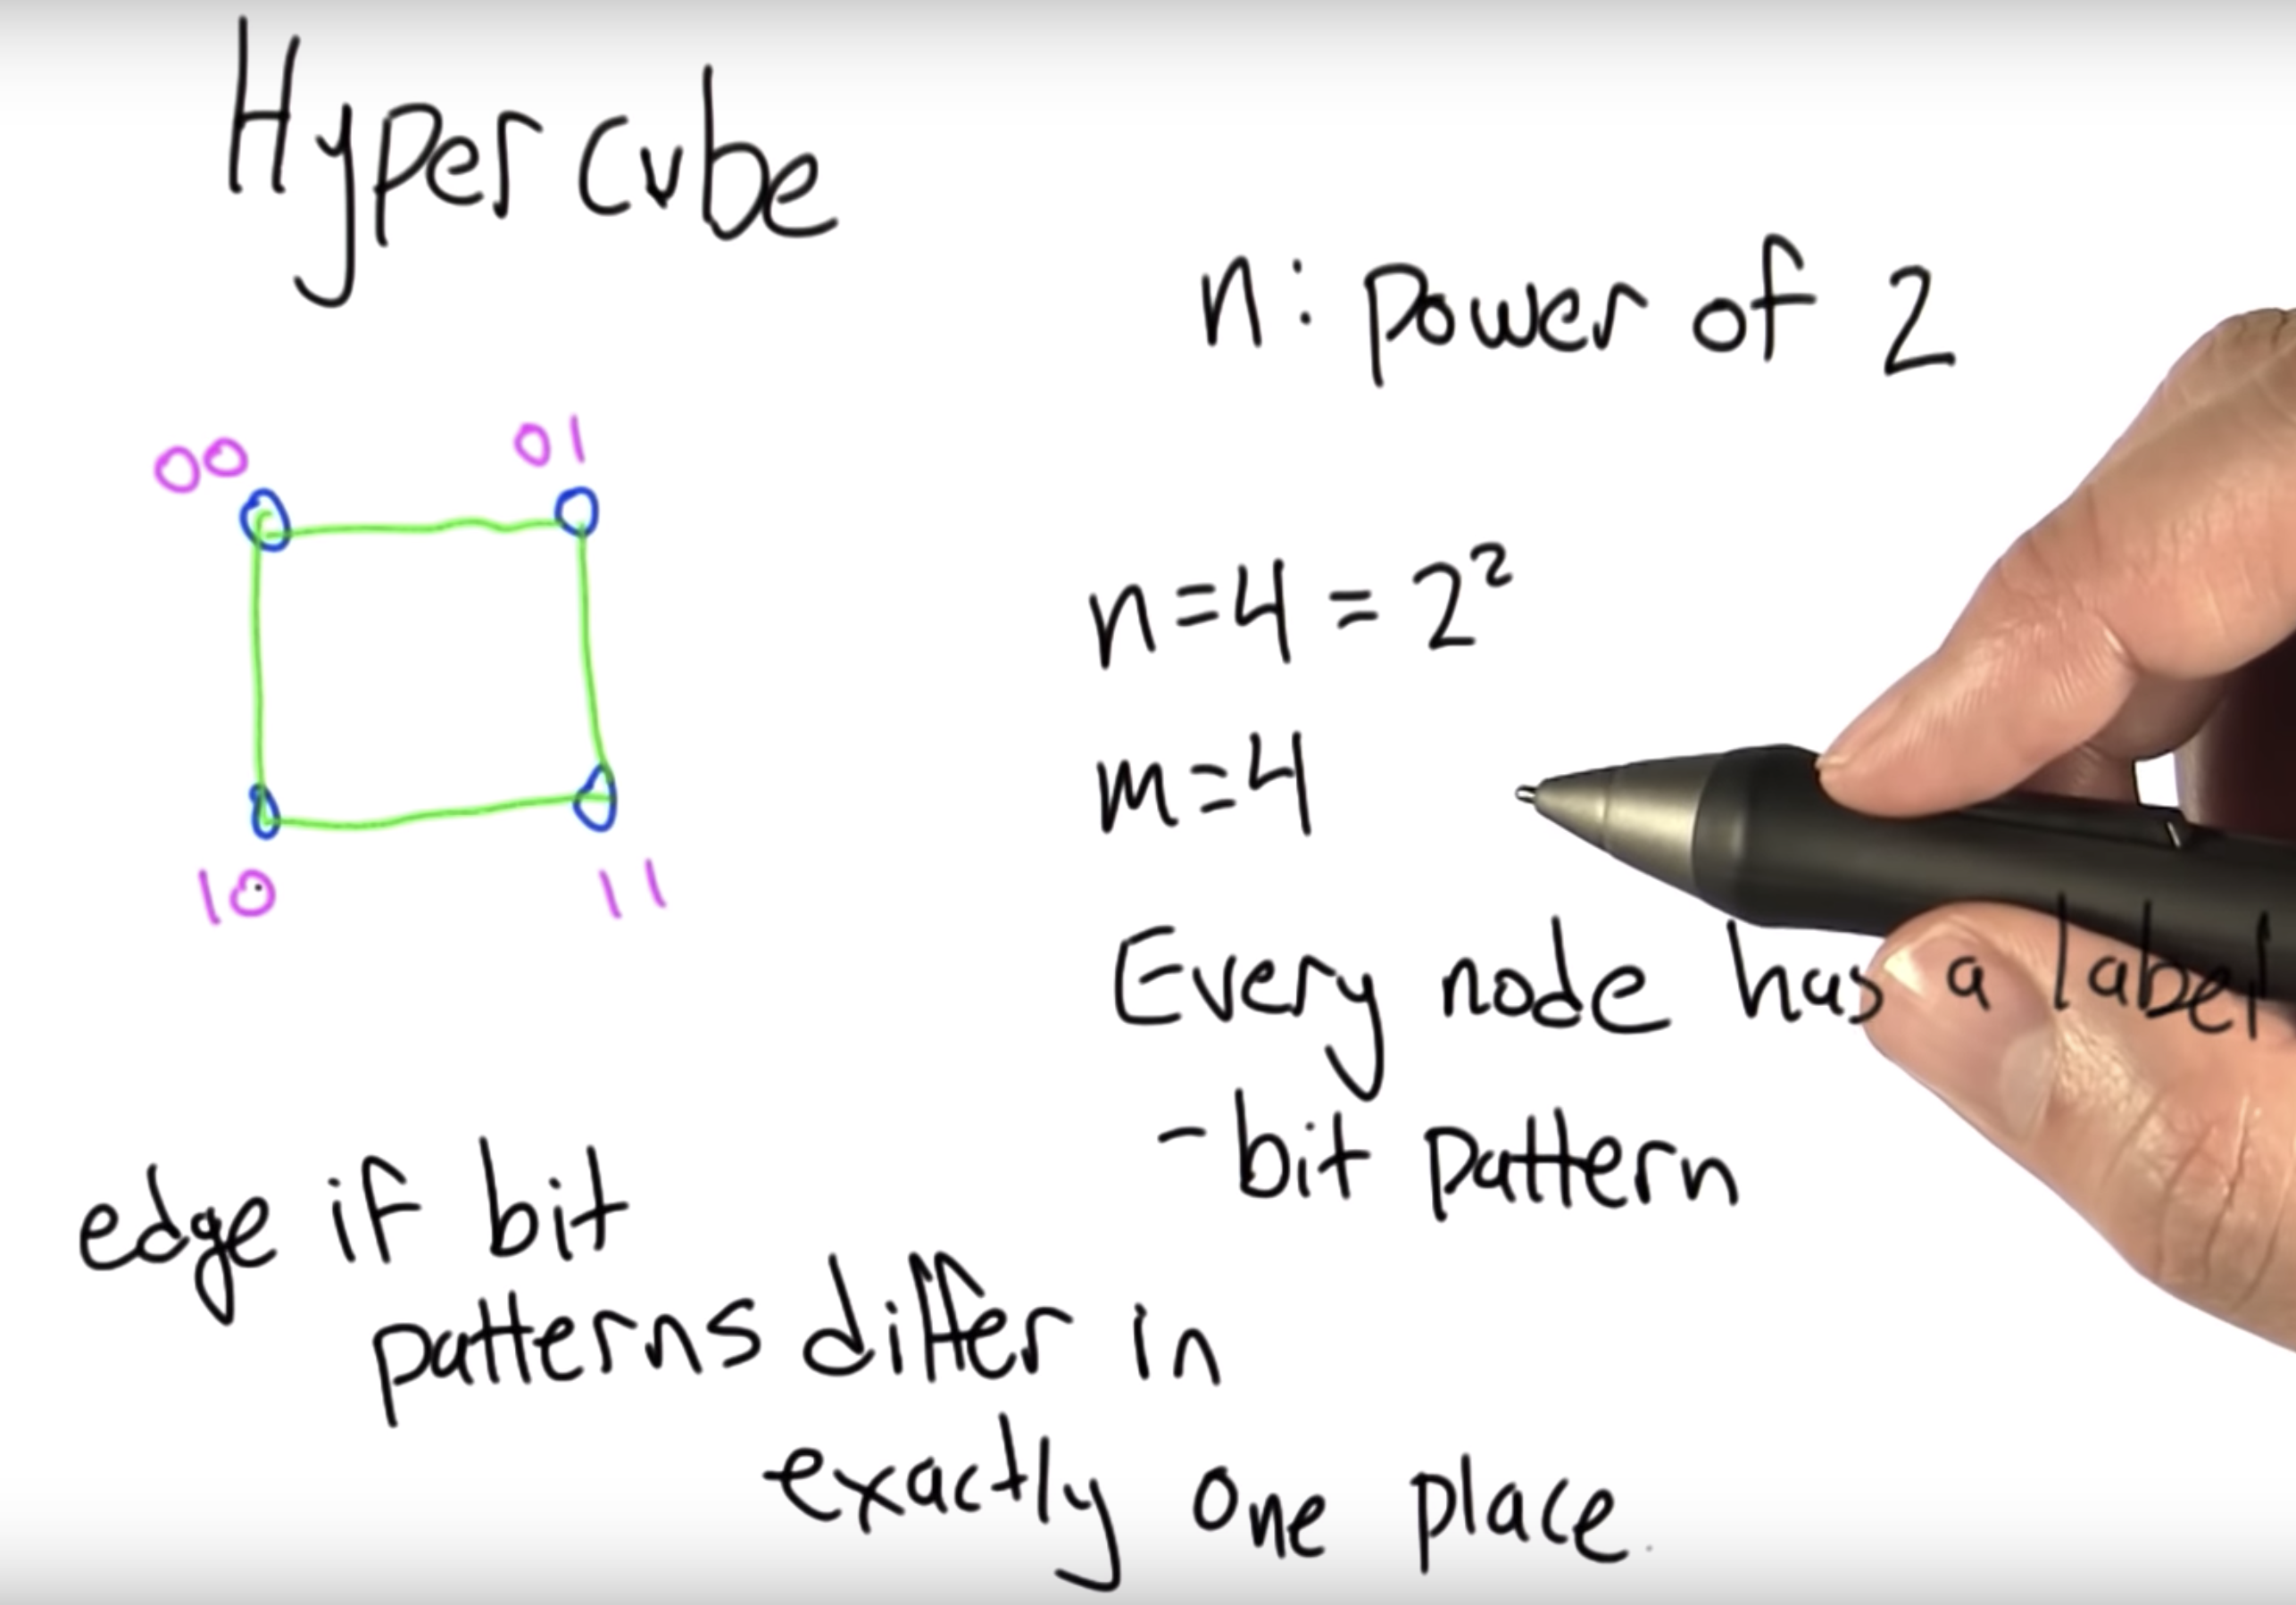 Hypercube
n: power of 2
00 01
n=4=2²
m=4
10 11
Every node has a label
-bit pattern
edge if bit
patterns differ in
exactly one place.